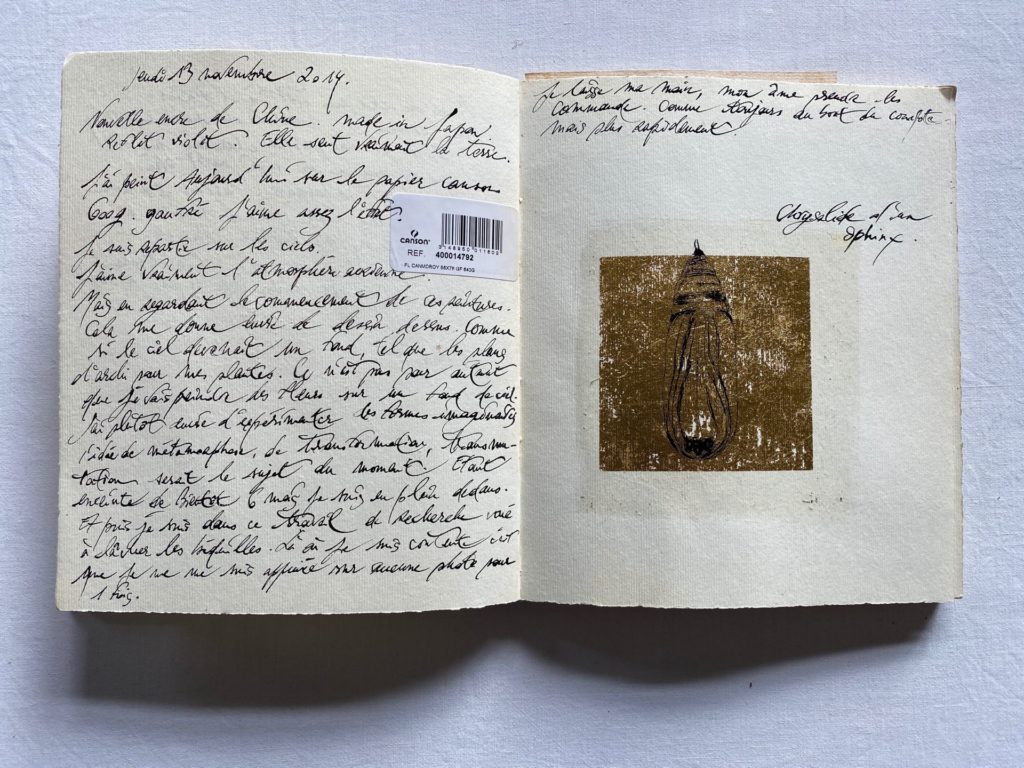 jeudi 13 novembre 2014.
Nouvelle encre de Chine. made in Japon.
Reflet violet. Elle sent vraiment la terre.
J'ai peint Aujourd'hui sur le papier canson
600g. gaufré j'aime assez l'état.
CANSON
3148950011602
REF. 400014792
FL CANMCROY 56X76 GF 640G
Je suis repartie sur les ciels.
J'aime vraiment l'atmosphère aérienne.
Mais en regardant le commencement de ces peintures.
Cela me donne envie de dessin dessus. Comme
si le ciel devenait un fond, tel que les plans
d'archi pour mes plantes. Ce n'est pas pour autant
que je vais peindre des fleurs sur un fond de ciel.
J'ai plutôt envie d'expérimenter les formes imaginaires
l'idée de métamorphose, de transformation, transmu-
tation serait le sujet du moment Etant
enceinte de 6 mois je suis en plein dedans.
Et puis je suis dans ce travail de recherche
à les. Là où je suis contente c'est
que je ne me suis appuyée sur aucune photo pour
1 fois.
Je laisse ma main, mon âme prendre les
commande. Comme toujours au bout du compte
mais plus rapidement
Chrysalide d'un
sphinx.